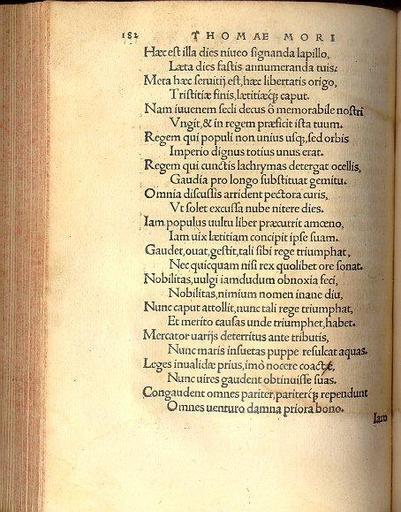 182 THOMAE MORI
Hæc est illa dies niueo signanda lapillo,
Læta dies fastis annumeranda tuis.
Meta hæc seruitij est, hæc libertatis origo,
Tristitiæ finis, lætitiæq; caput.
Nam iuuenem secli decus ô memorabile nostri
Vngit, & in regem præficit ista tuum.
Regem qui populi non unius usq;, sed orbis
Imperio dignus totius unus erat.
Regem qui cunctis lachrymas detergat ocellis,
Gaudia pro longo substituat gemitu.
Omnia discussis arrident pectora curis,
Vt solet excussa nube nitere dies.
Iam populus uultu liber præcurrit amœno,
Iam uix lætitiam concipit ipse suam.
Gaudet, ouat, gestit, tali sibi rege triumphat,
Nec quicquam nisi rex quolibet ore sonat.
Nobilitas, uulgi iamdudum obnoxia feci,
Nobilitas, nimium nomen inane diu,
Nunc caput attollit, nunc tali rege triumphat,
Et merito causas unde triumphet, habet.
Mercator uarijs deterritus ante tributis,
Nunc maris insuetas puppe resulcat aquas.
Leges inualidæ prius, imò nocere coactæ,
Nunc uires gaudent obtinuisse suas.
Congaudent omnes pariter, pariterq; rependunt
Omnes uenturo damna priora bono.
Iam